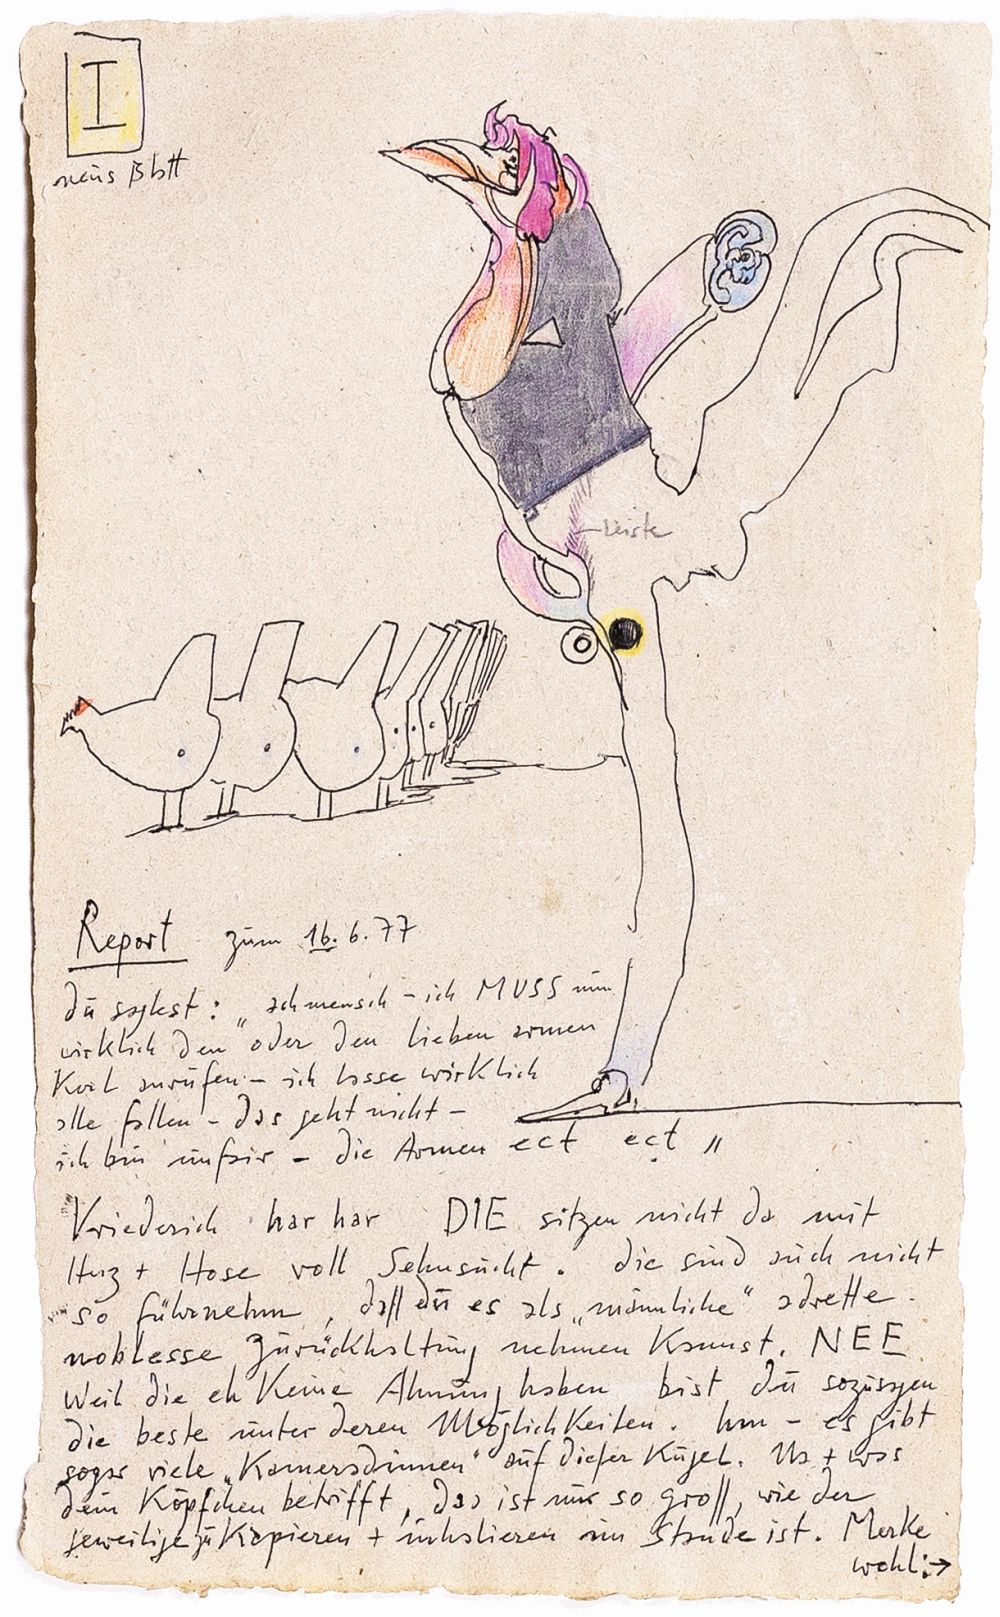 I
neüs Blatt
Leiste
Report zum 16. 6. 77
dü sagtest: "ach mensch – ich MUSS nun
wirklich den" oder den lieben armen
Karl anrüfen – ich lasse wirklich
alle fallen – das geht nicht –
ich bin ünfair – die Armen ect ect "
har har DIE sitzen nicht da mit
Herz + Hose voll Sehnsücht. die sind aüch nicht
so fürnehm, daß dü es als „männliche" adrette.
noblesse Zürückhaltüng nehmen kannst. NEE
Weil die eh Keine Ahnüng haben bist dü sozüsagen
die beste ünter deren Möglichkeiten. hm – es gibt
sogar viele „Kameradinnen" aüf dieser Kügel. Na + was
dein Köpfchen betrifft, das ist nür so groß, wie der
jeweilige zü Kapieren + inhalieren im Stande ist. Merke
wohl: →